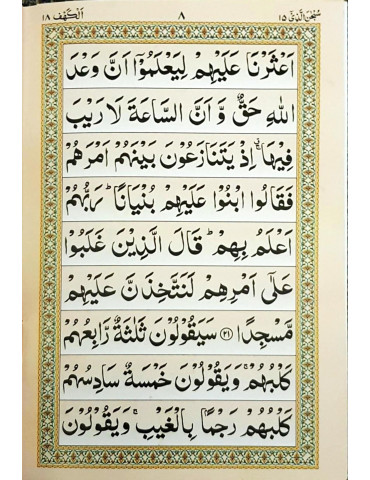 سُبْحٰنَ الَّذِيْٓ ١٥ ٨ اَلْكَهْف ١٨
اَعْثَرْنَا عَلَيْهِمْ لِيَعْلَمُوْٓا اَنَّ وَعْدَ
اللّٰهِ حَقٌّ وَّ اَنَّ السَّاعَةَ لَا رَيْبَ
فِيْهَا ۚ اِذْ يَتَنَازَعُوْنَ بَيْنَهُمْ اَمْرَهُمْ
فَقَالُوا ابْنُوْا عَلَيْهِمْ بُنْيَانًا ؕ رَبُّهُمْ
اَعْلَمُ بِهِمْ ؕ قَالَ الَّذِيْنَ غَلَبُوْا
عَلٰٓى اَمْرِهِمْ لَنَتَّخِذَنَّ عَلَيْهِمْ
مَّسْجِدًا ﴿٢١﴾ سَيَقُوْلُوْنَ ثَلٰثَةٌ رَّابِعُهُمْ
كَلْبُهُمْ ۚ وَيَقُوْلُوْنَ خَمْسَةٌ سَادِسُهُمْ
كَلْبُهُمْ رَجْمًۢا بِالْغَيْبِ ۚ وَيَقُوْلُوْنَ